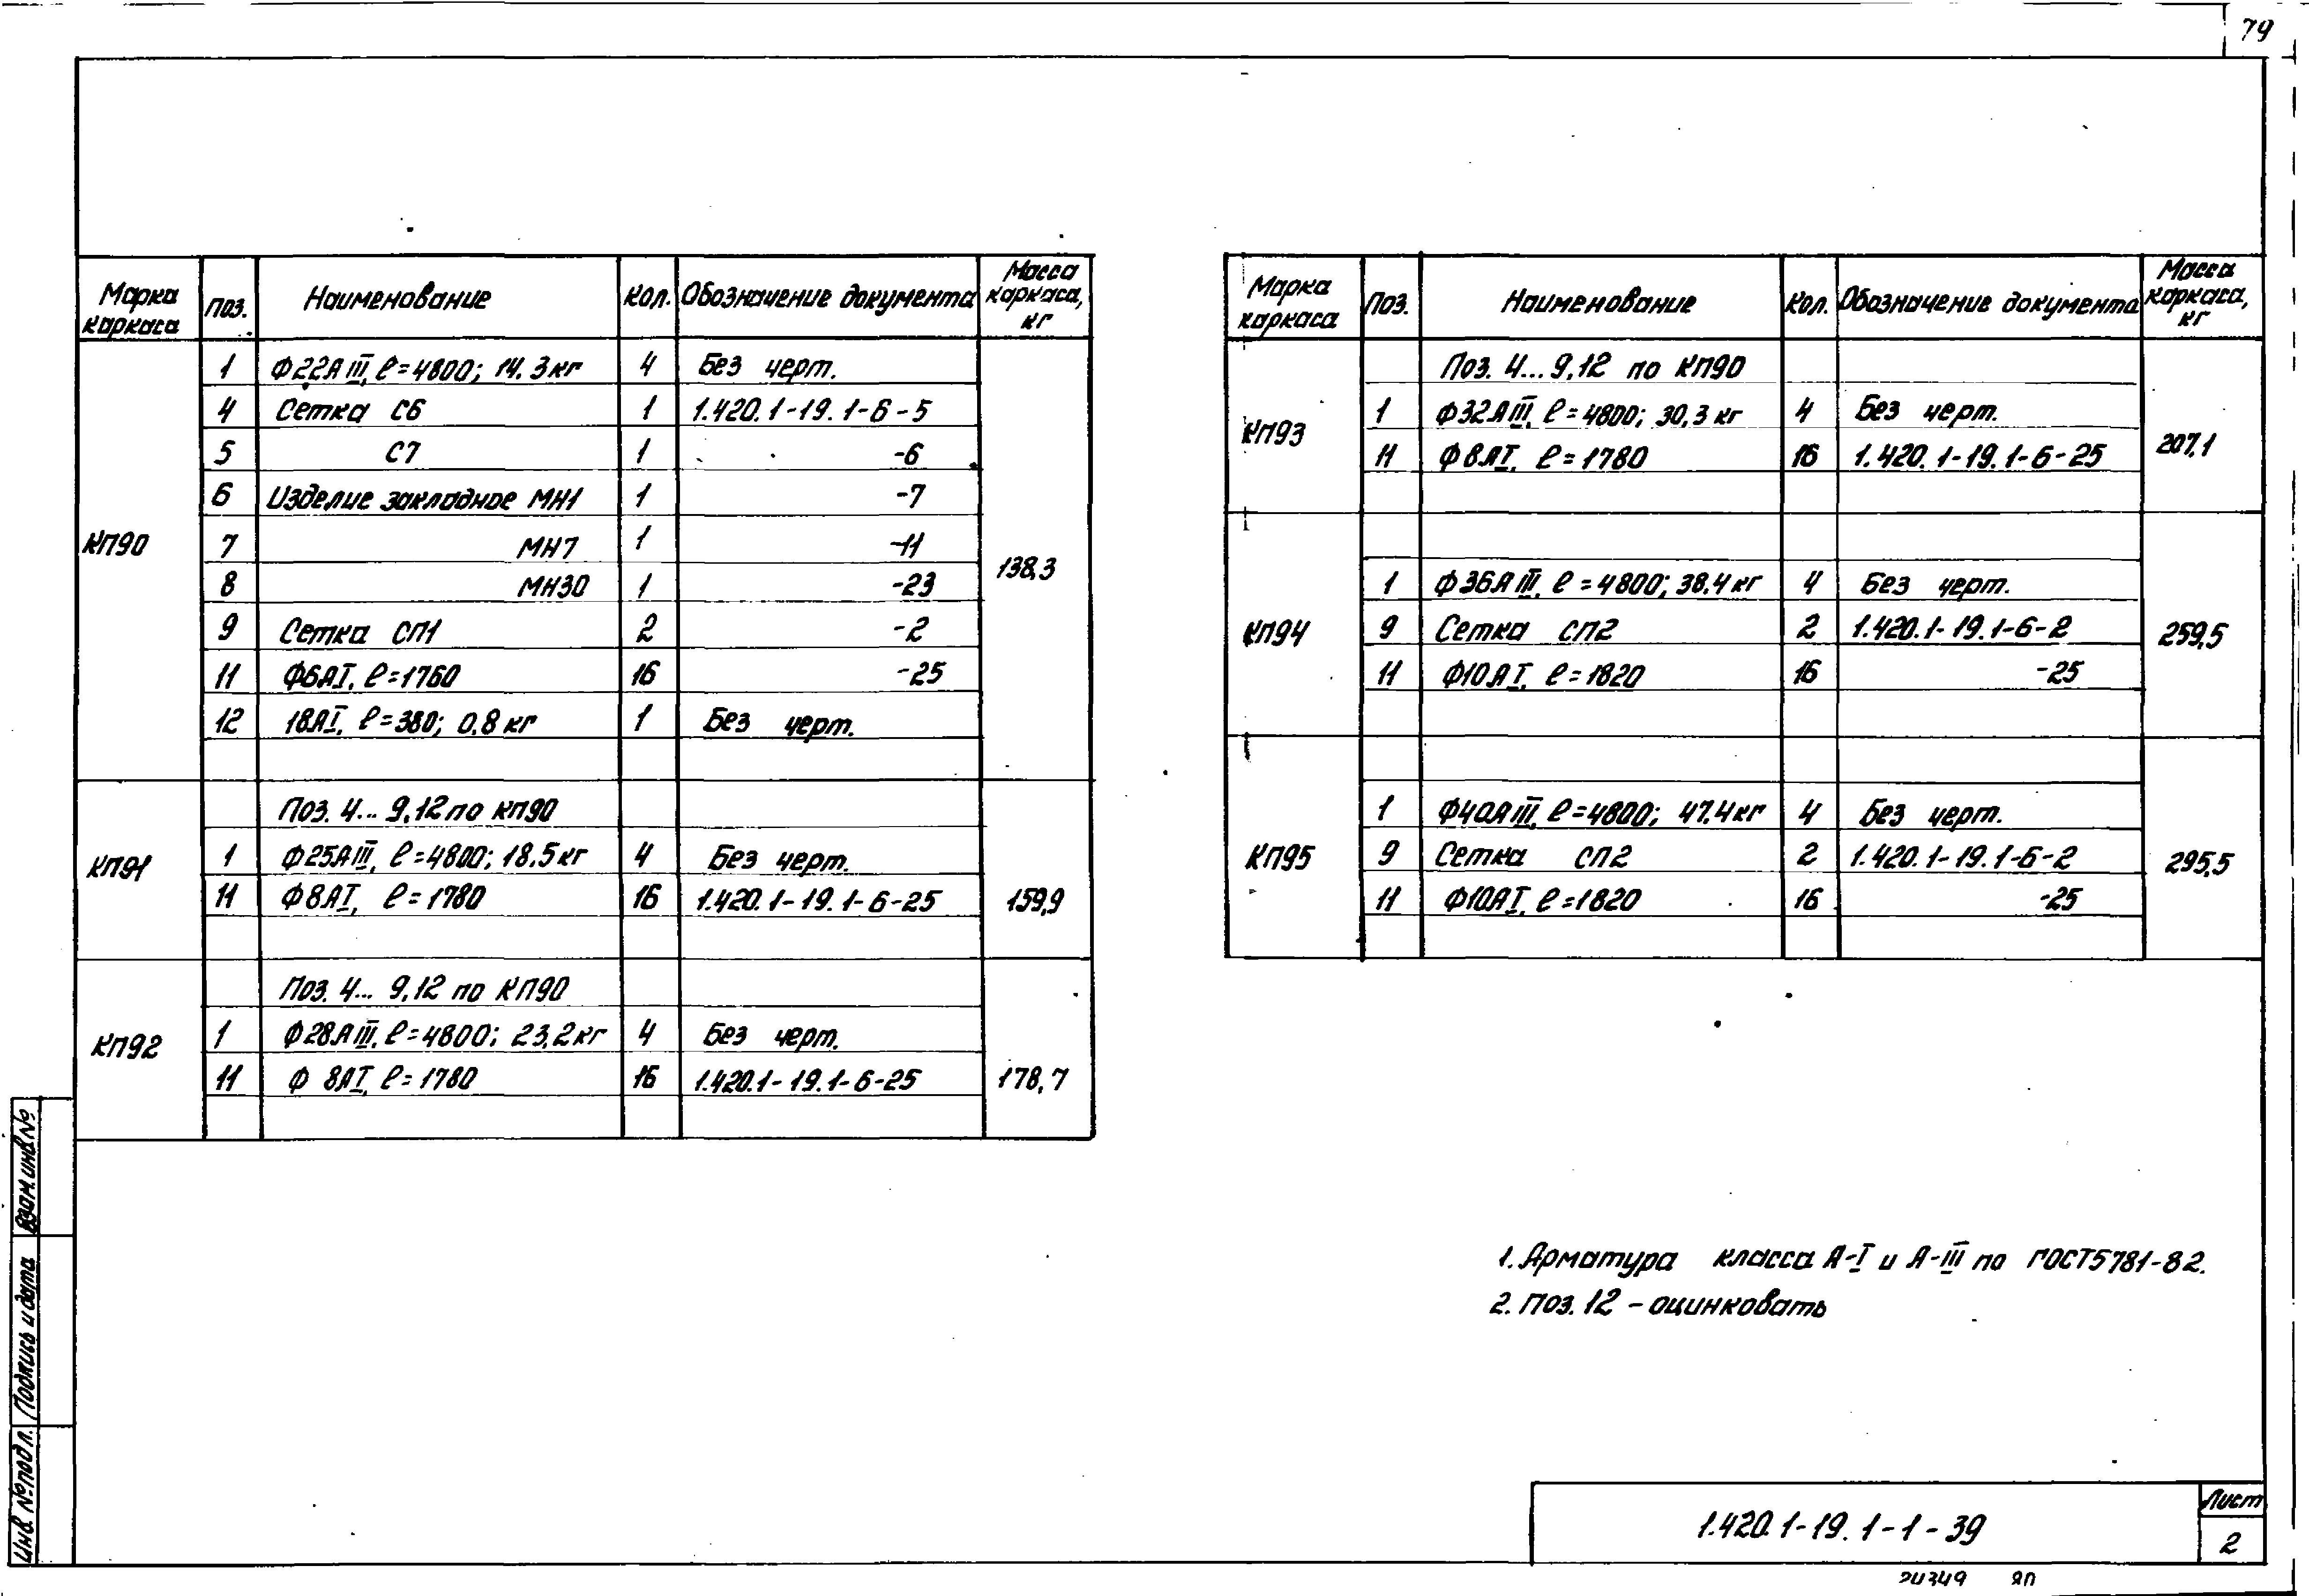 79
Марка каркаса Поз. Наименование Кол. Обозначение документа Масса каркаса, кг
КП90 138,3
1 Ф22АIII, ℓ=4800; 14.3кг 4 Без черт.
4 Сетка С6 1 1.420.1-19.1-6-5
5 С7 1 -6
6 Изделие закладное МН1 1 -7
7 МН7 1 -11
8 МН30 1 -23
9 Сетка СП1 2 -2
11 Ф6АI, ℓ=1760 16 -25
12 18АI, ℓ=380; 0,8кг 1 Без черт.
КП91 159,9
Поз. 4... 9,12 по КП90
1 Ф25АIII, ℓ=4800; 18.5кг 4 Без черт.
11 Ф8АI, ℓ=1780 16 1.420.1-19.1-6-25
КП92 178,7
Поз. 4... 9,12 по КП90
1 Ф28АIII, ℓ=4800; 23,2кг 4 Без черт.
11 Ф 8АI, ℓ=1780 16 1.420.1-19.1-6-25
Марка каркаса Поз. Наименование Кол. Обозначение документа Масса каркаса, кг
КП93 207,1
Поз. 4... 9,12 по КП90
1 Ф32АIII, ℓ=4800; 30,3кг 4 Без черт.
11 Ф8АI, ℓ=1780 16 1.420.1-19.1-6-25
КП94 259,5
1 Ф36АIII, ℓ=4800; 38.4кг 4 Без черт.
9 Сетка СП2 2 1.420.1-19.1-6-2
11 Ф10АI, ℓ=1820 16 -25
КП95 295,5
1 Ф40АIII, ℓ=4800; 47.4кг 4 Без черт.
9 Сетка СП2 2 1.420.1-19.1-6-2
11 Ф10АI, ℓ=1820 16 -25
1. Арматура класса А-I и А-III по ГОСТ5781-82.
2. Поз. 12 - оцинковать
Инв. № подл. Подпись и дата Взам.инв.№
1.420.1-19.1-1-39
Лист
2
24349 80